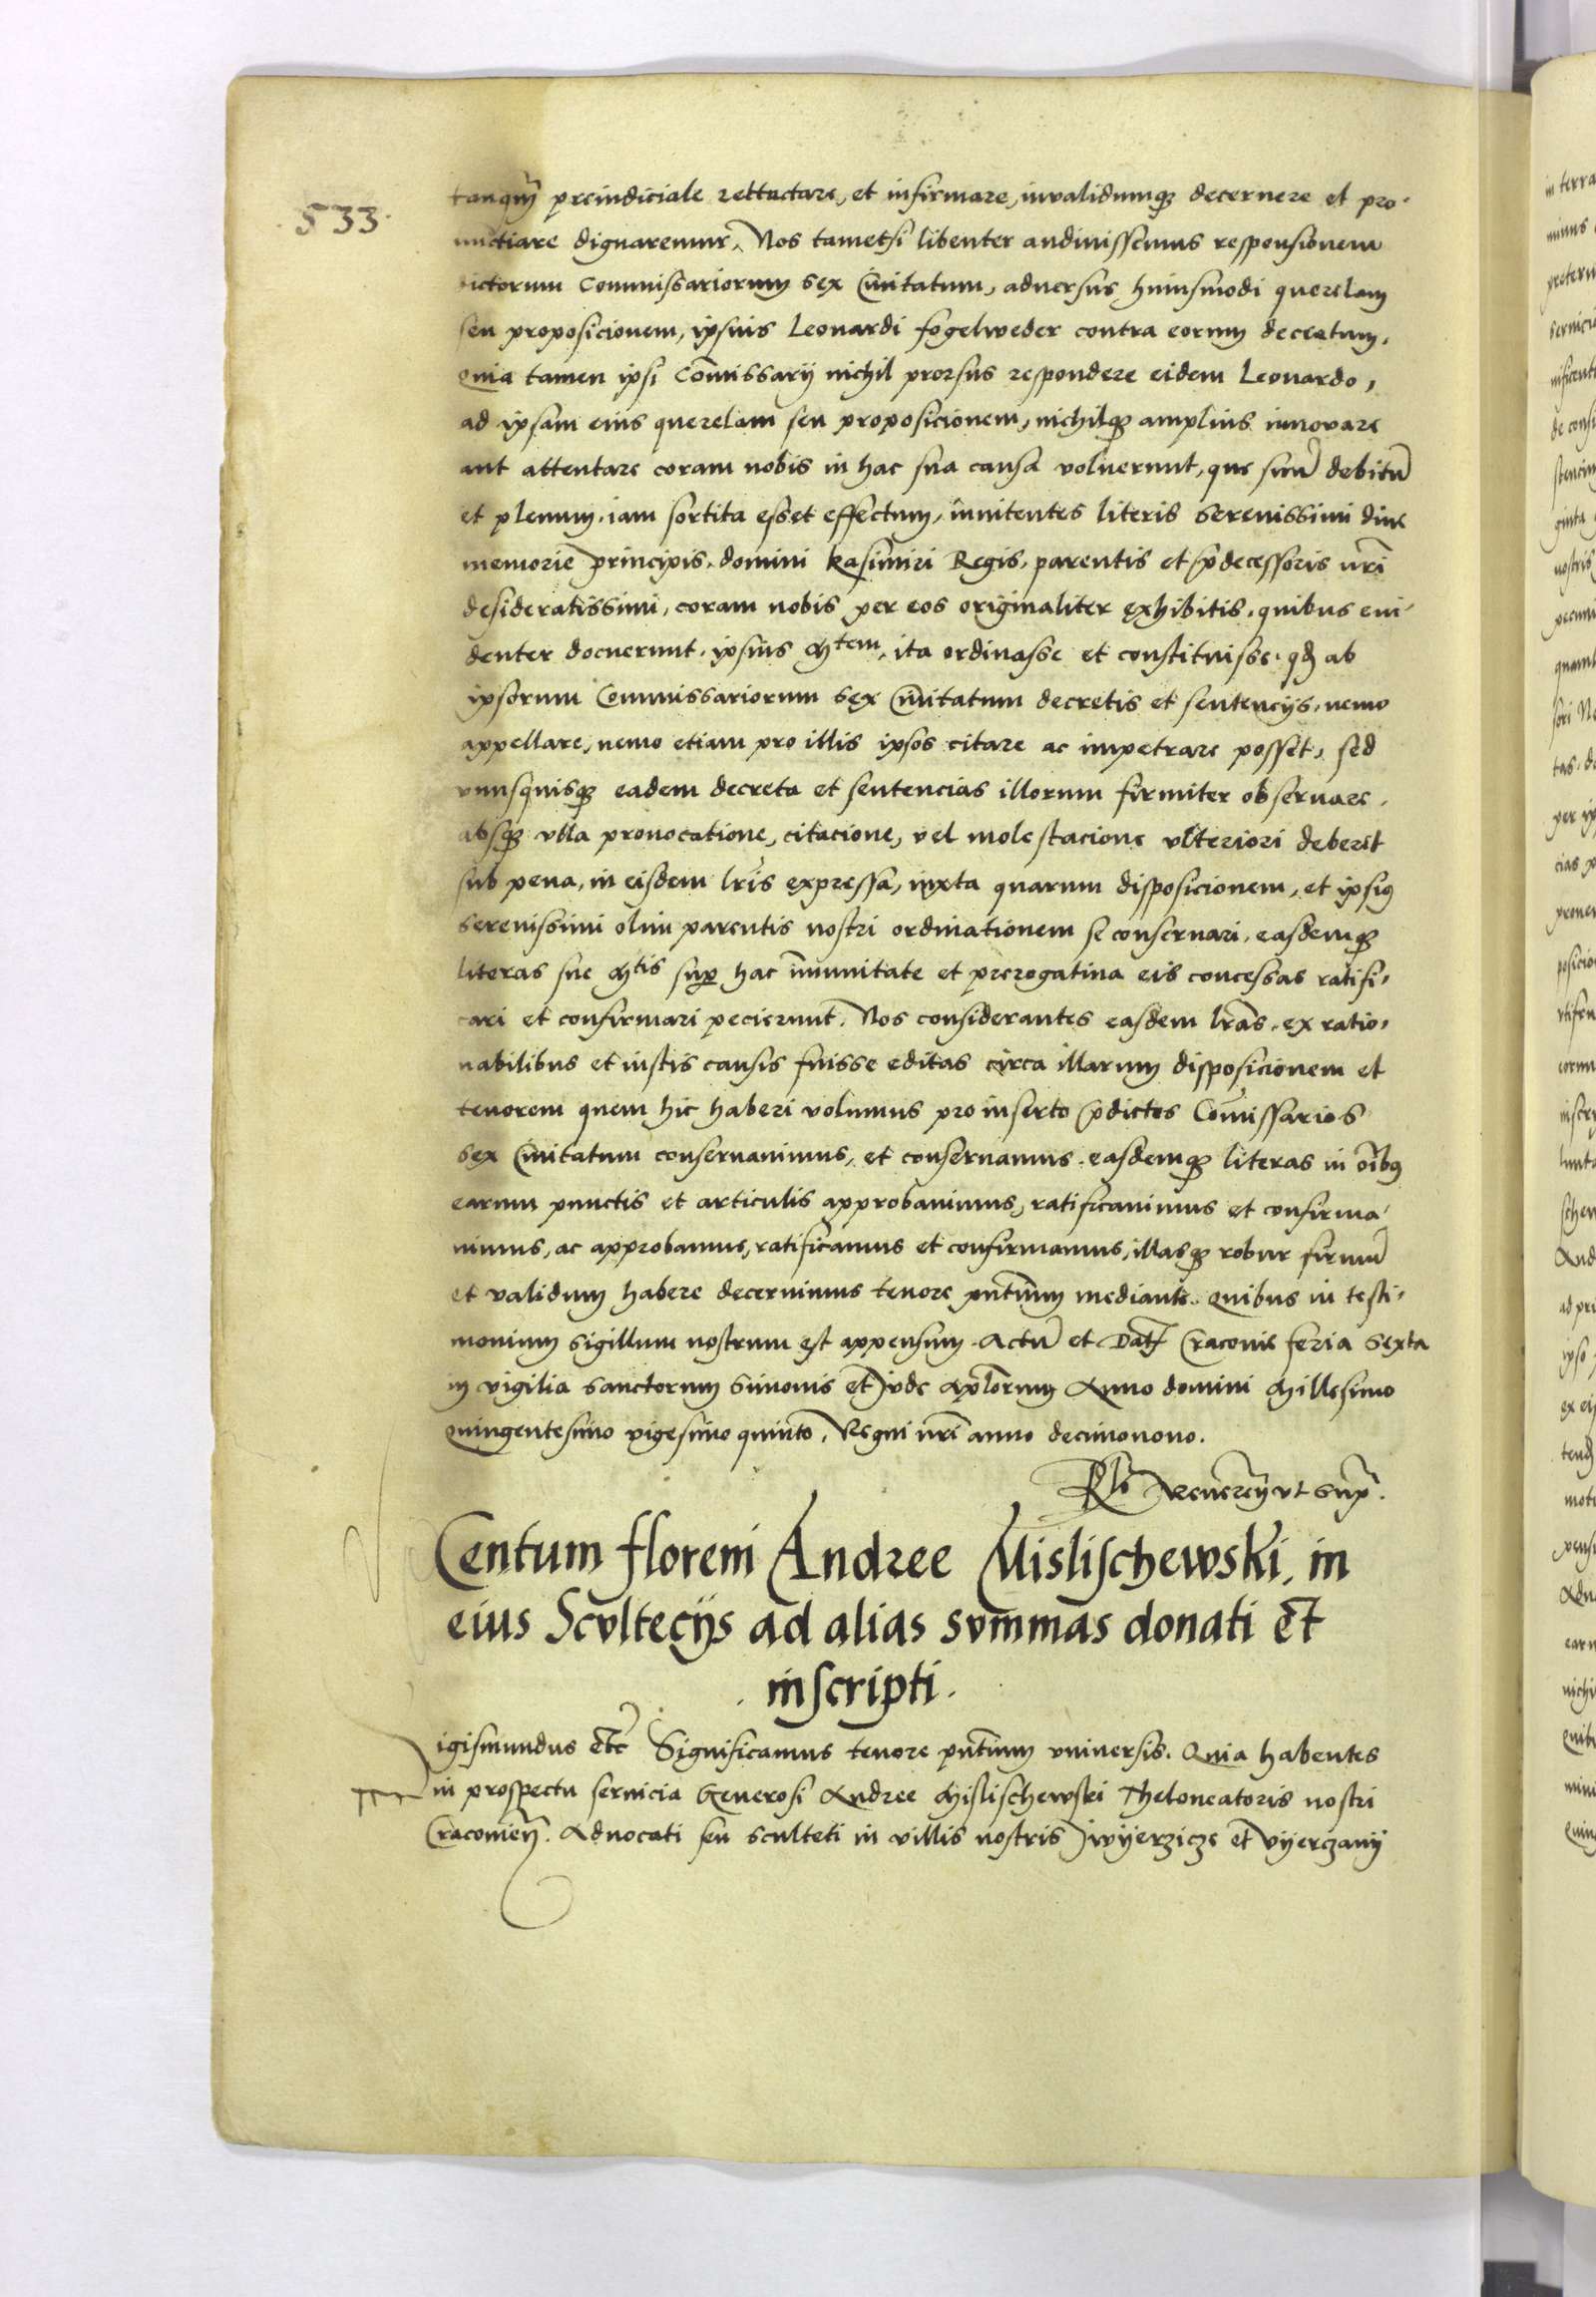 533.
tanq̃m preiudiciale rettactare, et infirmare, invalidumqꝫ decernere et pro-
nuctiare dignaremur. Nos tametsi libenter audivissemus responsionem
dictorum Commissariorum sex Civitatum, adversus huiusmodi querelam
seu proposicionem, ipsius Leonardi fogelweder contra eorum decretum.
quia tamen ipsi Cõmissarij nichil prorsus respondere eidem Leonardo,
ad ipsam eius querelam seu proposicionem, nichilqꝫ amplius innovare
aut attentare coram nobis in hac sua causa voluerunt, que suũ debitũ
et plenum iam sortita esset effectum, innitentes literis Serenissimi dive
memorie principis domini Kasimiri Regis, parentis et p̃decessoris nr̃i
desideratissimi, coram nobis per eos originaliter exhibitis, quibus evi-
denter docuerunt, ipsius Mtem, ita ordinasse et constituisse, qđ ab
ipsorum Commissariorum sex Civitatum decretis et sentencijs, nemo
appellare, nemo etiam pro illis ipsos citare ac impetrare posset, sed
unusquisqꝫ eadem decreta et sentencias illorum firmiter observare,
absqꝫ ulla provocatione, citacione, vel molestacione ulteriori deberet
sub pena, in eisdem lr̃is expressa, iuxta quarum disposicionem, et ipsiꝰ
Serenissimi olim parentis nostri ordinationem se conservari, easdemqꝫ
literas sue Mtis sup̱ hac im̃unitate et prerogativa eis concessas ratifi-
cari et confirmari pecierunt. Nos considerantes easdem lr̃as, ex ratio-
nabilibus et iustis causis fuisse editas circa illarum disposicionem et
tenorem quem hic haberi volumus pro inserto p̃dictos Com̃issarios
sex Civitatum conservavimus, et conservamus, easdemqꝫ literas in oĩbꝰ
earum punctis et articulis approbavimus, ratificavimus et confirma-
vimus, ac approbamus, ratificamus et confirmamus, illasqꝫ robur firmũ
et validum habere decernimus tenore pñtium mediante. Quibus in testi-
monium sigillum nostrum est appensum. Actũ et Dat̃ Cracovie feria Sexta
in vigilia Sanctorum Simonis et Jude Apl̃orum Anno domini Millesimo
quingentesimo vigesimo quinto, Regni nr̃i anno decimonono.
Rlõ Renerẽn ut Sup̃.
Centum floreni Andree Mislischewski, in
eius Scultecijs ad alias summas donati et
inscripti.
Sigismundus etc̃ Significamus tenore pñtium universis. Quia habentes
in prospectu servicia Generosi Andree Mislischewski Theloneatoris nostri
Cracovieñ. Advocati seu sculteti in villis nostris Jwyerzicze et Vyerczany